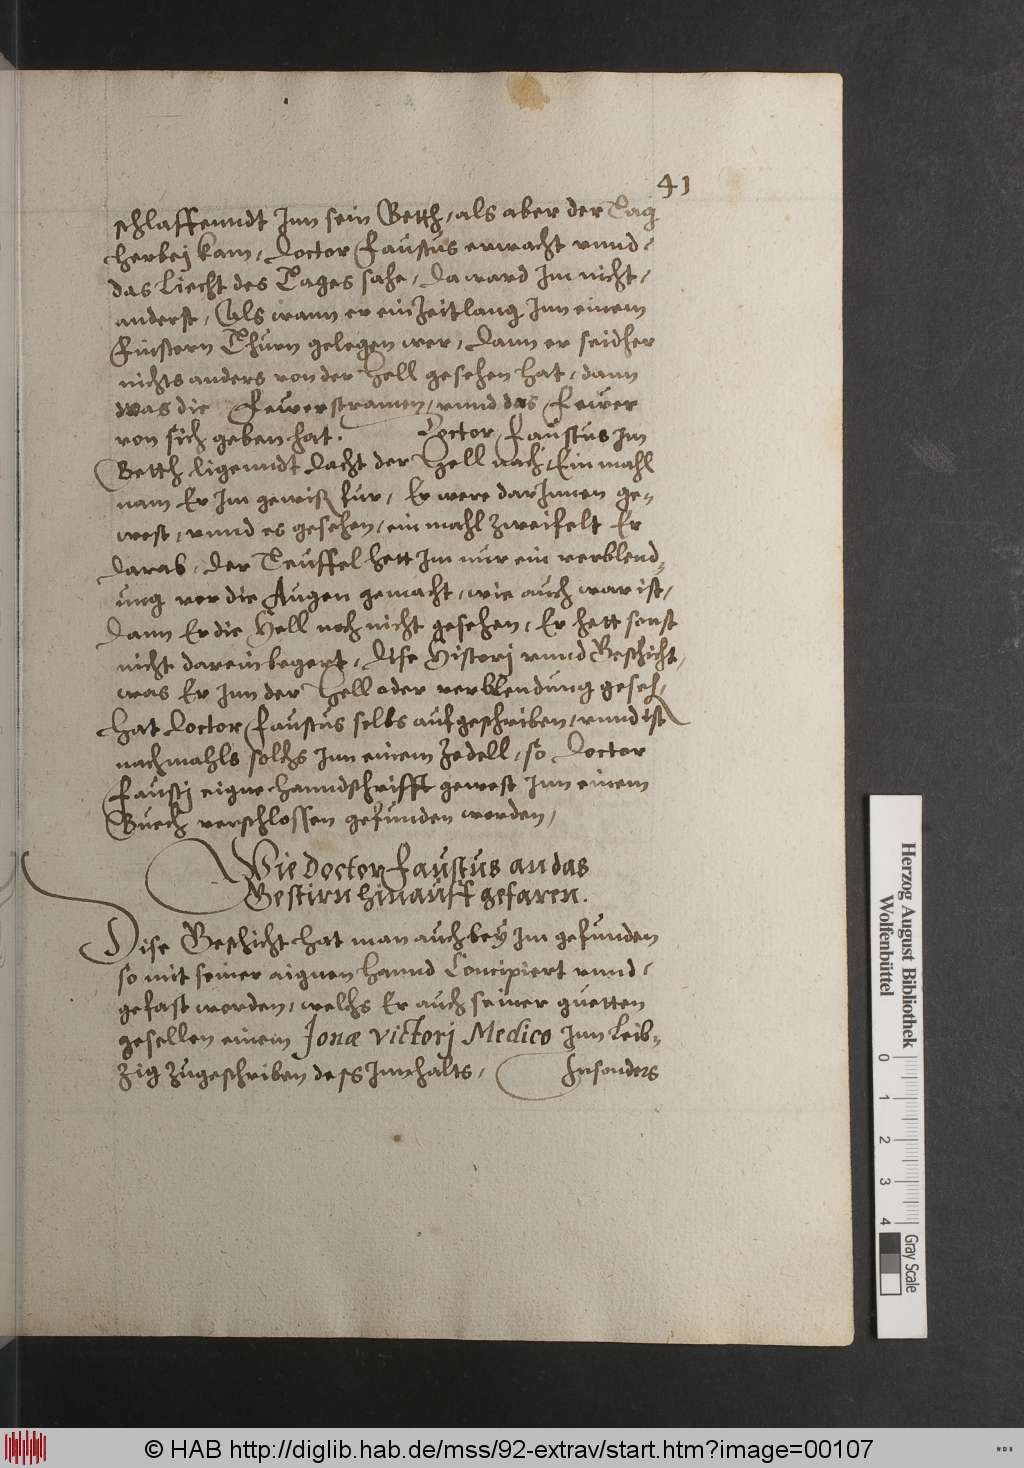 41
schlaffenndt Inn sein Betth, als aber der Tag
herbej kam, Doctor Faustus erwacht vnnd,
das Liecht des Tages sahe, da ward Im nicht,
anderst, Als wann er ein Zeitlang Inn einem
Finstern Thurn gelegen wer, Dann er seidher
nichts anders von der Hell gesehen hat, dann
was die Fewerstramen, vnnd das Fewer
von sich geben hat. Doctor Faustus Im
Betth ligenndt dacht der Hell nach, Ein mahl
nam Er Im gewiß fur, Er were darInnen ge-
west, vnnd es gesehen, ein mahl zweifelt Er
darab, der Teuffel hett Im nur ein verblend-
ung vor die Augen gemacht, wie auch war ist,
dann Er die Hell noch nicht gesehen, Er hett sonst
nicht darein begert, Dise Historj vnnd Geschicht,
was Er Inn der Hell oder verblendung geseh,
hat Doctor Faustus selbs aufgeschriben, vnnd ist
nachmahls solchs Inn einem Zedell, so Doctor
Faustj eigne hanndschrifft gewest Inn einem
Buech verschlossen gefunden worden,
Wie Doctor Faustus an das
Gestirn hinauff gefaren.
Dise Geschicht hat man auch bey Im gefunden
so mit seiner aignen hannd Concipiert vnnd,
gefast worden, welchs Er auch seiner guetten
gesellen einem Jonæ Victorj Medico Inn Leib-
zig zugeschriben dess Innhalts, Insonders
Herzog August Bibliothek
Wolfenbüttel
0 1 2 3 4
Gray Scale
© HAB http://diglib.hab.de/mss/92-extrav/start.htm?image=00107
WDB